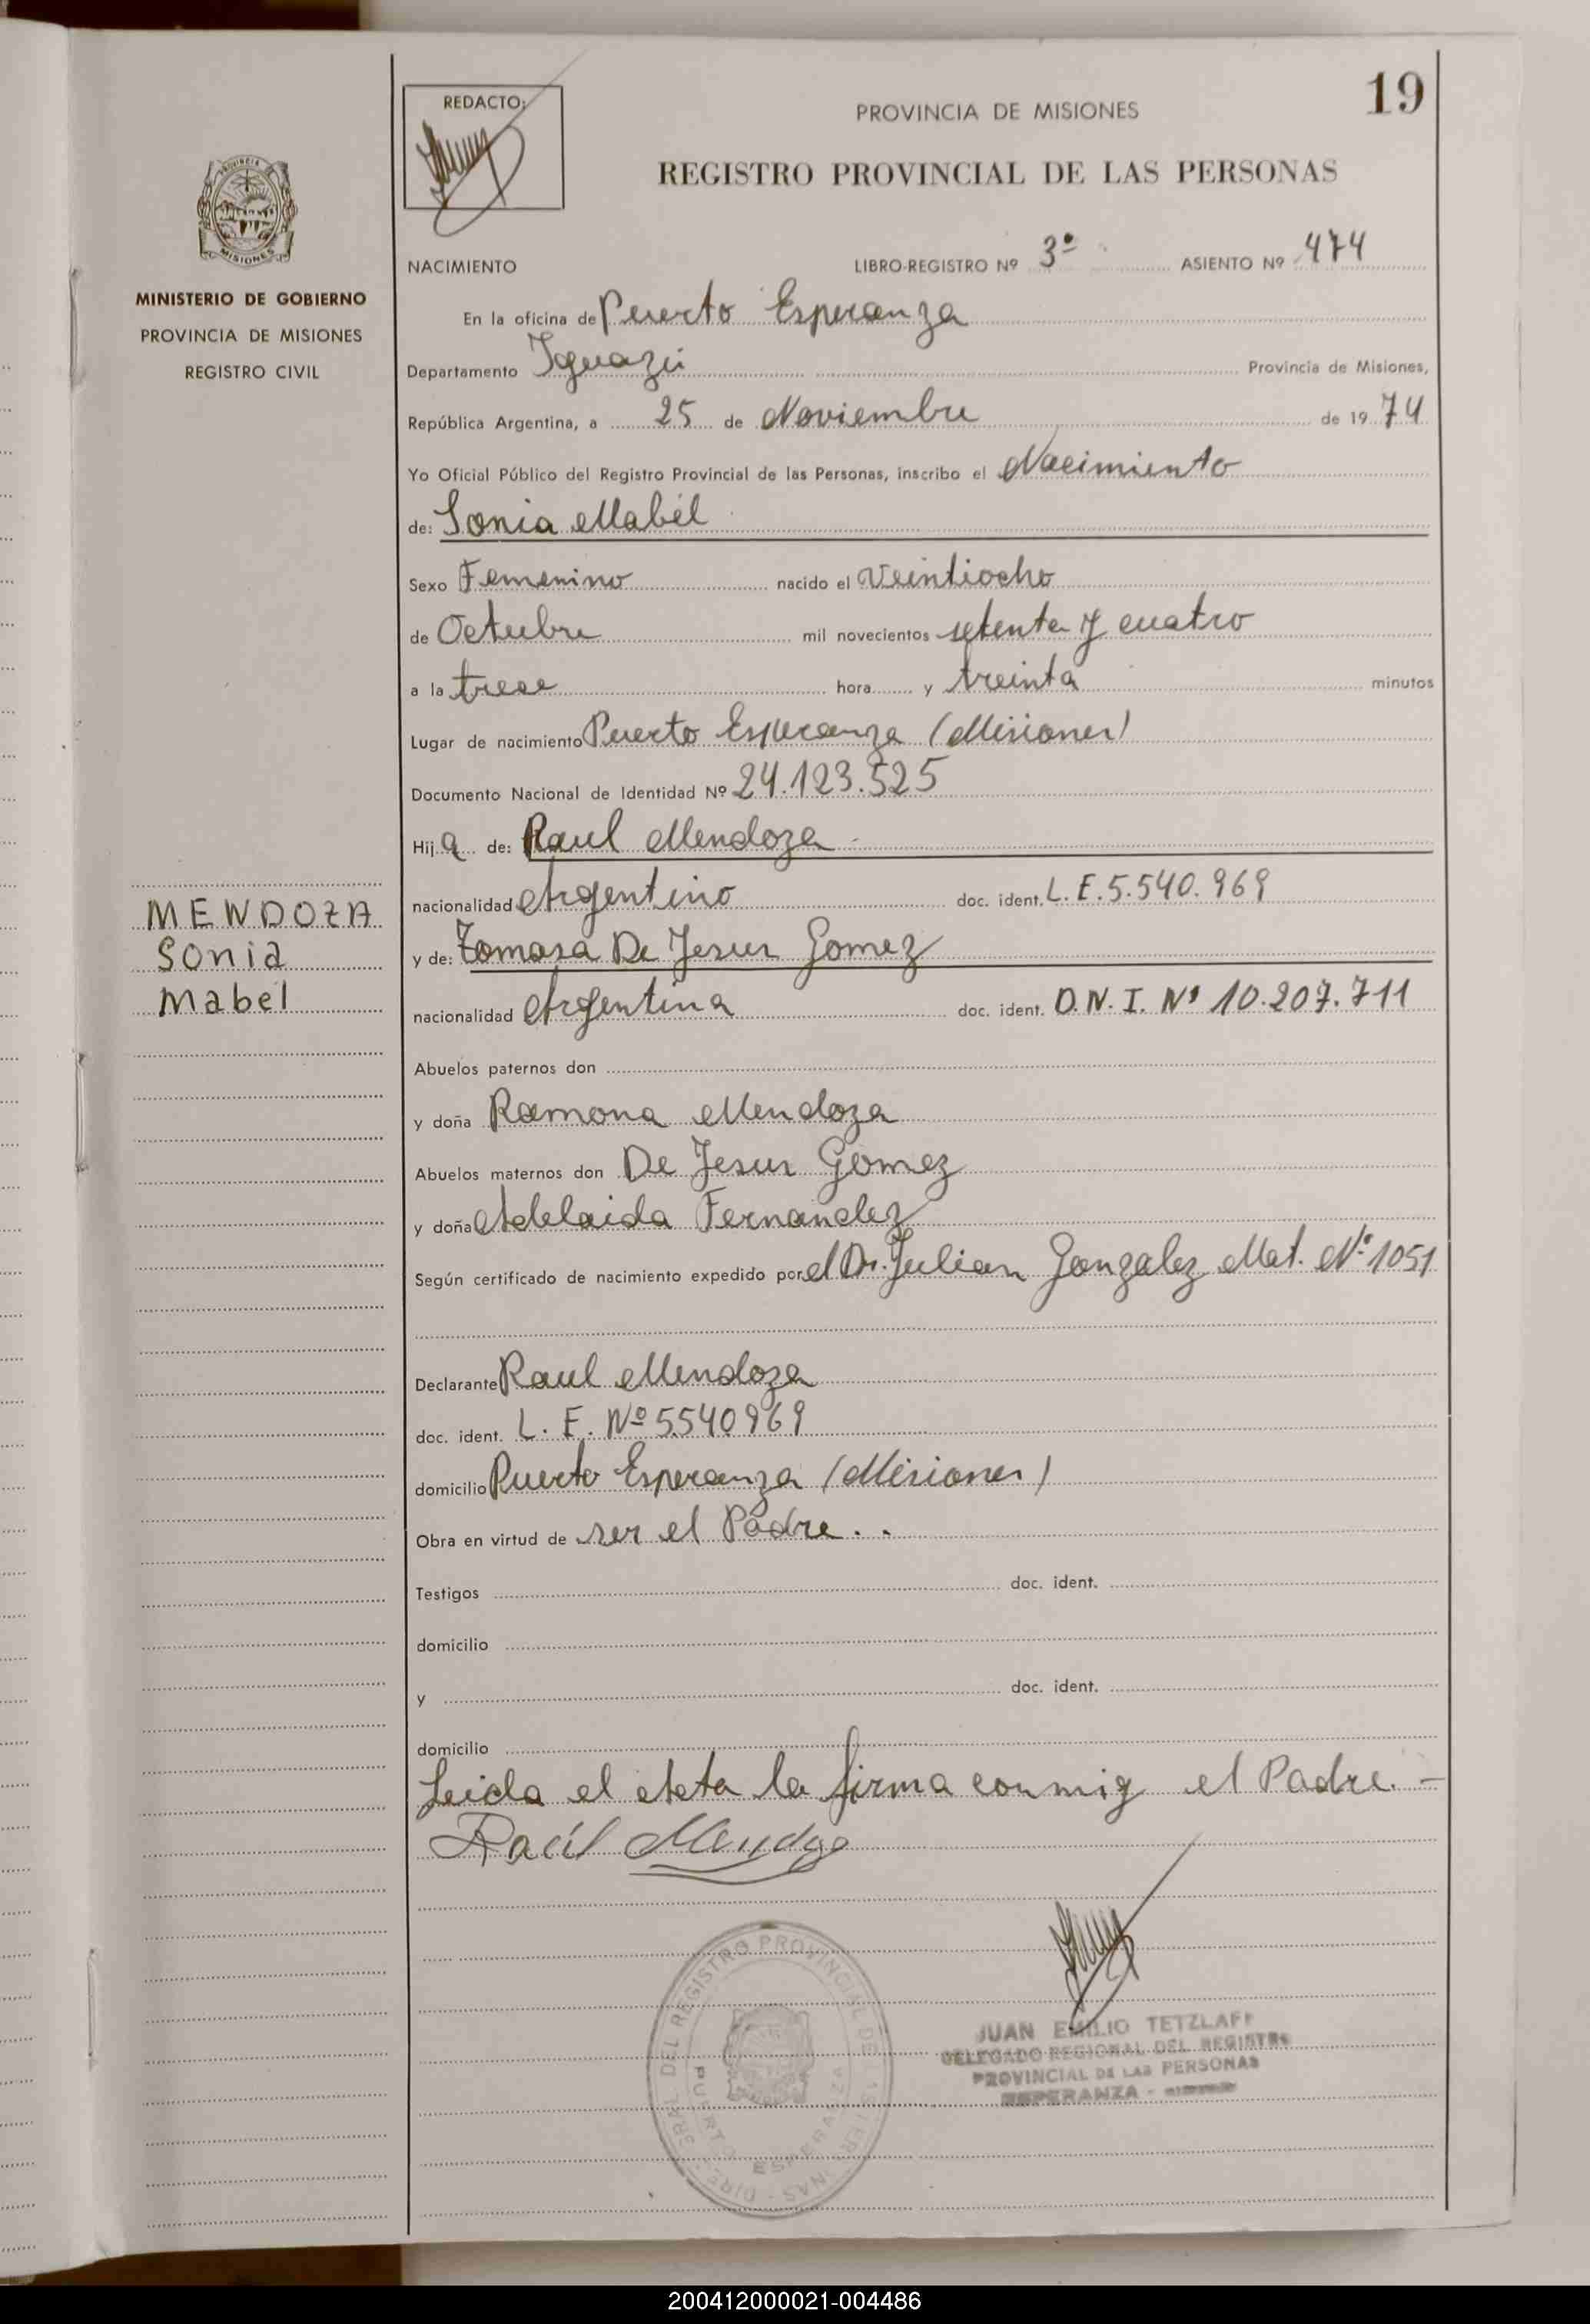 19
REDACTO:
PROVINCIA DE MISIONES
REGISTRO PROVINCIAL DE LAS PERSONAS
PROVINCIA
MISIONES
MINISTERIO DE GOBIERNO
PROVINCIA DE MISIONES
REGISTRO CIVIL
NACIMIENTO LIBRO-REGISTRO Nº 3º ASIENTO Nº 474
En la oficina de Puerto Esperanza
Departamento Iguazú Provincia de Misiones,
República Argentina, a 25 de Noviembre de 1974
Yo Oficial Público del Registro Provincial de las Personas, inscribo el Nacimiento
de: Sonia Mabél
Sexo Femenino nacido el Veintiocho
de Octubre mil novecientos setenta y cuatro
a la trece hora y treinta minutos
Lugar de nacimiento Puerto Esperanza (Misiones)
Documento Nacional de Identidad Nº 24.123.525
Hija de: Raul Mendoza
nacionalidad Argentino doc. ident. L. E. 5.540.969
MENDOZA
Sonia
Mabel
y de: Tomasa De Jesus Gomez
nacionalidad Argentina doc. ident. D.N.I. Nº 10.207.711
Abuelos paternos don
y doña Ramona Mendoza
Abuelos maternos don De Jesus Gomez
y doña Adelaida Fernandez
Según certificado de nacimiento expedido por el Dr. Julian Gonzalez Mat. Nº 1051
Declarante Raul Mendoza
doc. ident. L. E. Nº 5540969
domicilio Puerto Esperanza (Misiones)
Obra en virtud de ser el Padre..
Testigos doc. ident.
domicilio
y doc. ident.
domicilio
Leida el Acta la firma conmig el Padre. -
Raúl Mendoza
JUAN EMILIO TETZLAFF
DELEGADO REGIONAL DEL REGISTRO
PROVINCIAL DE LAS PERSONAS
ESPERANZA -
DEL REGISTRO PROVINCIAL DE
PUERTO ESPERANZA
200412000021-004486